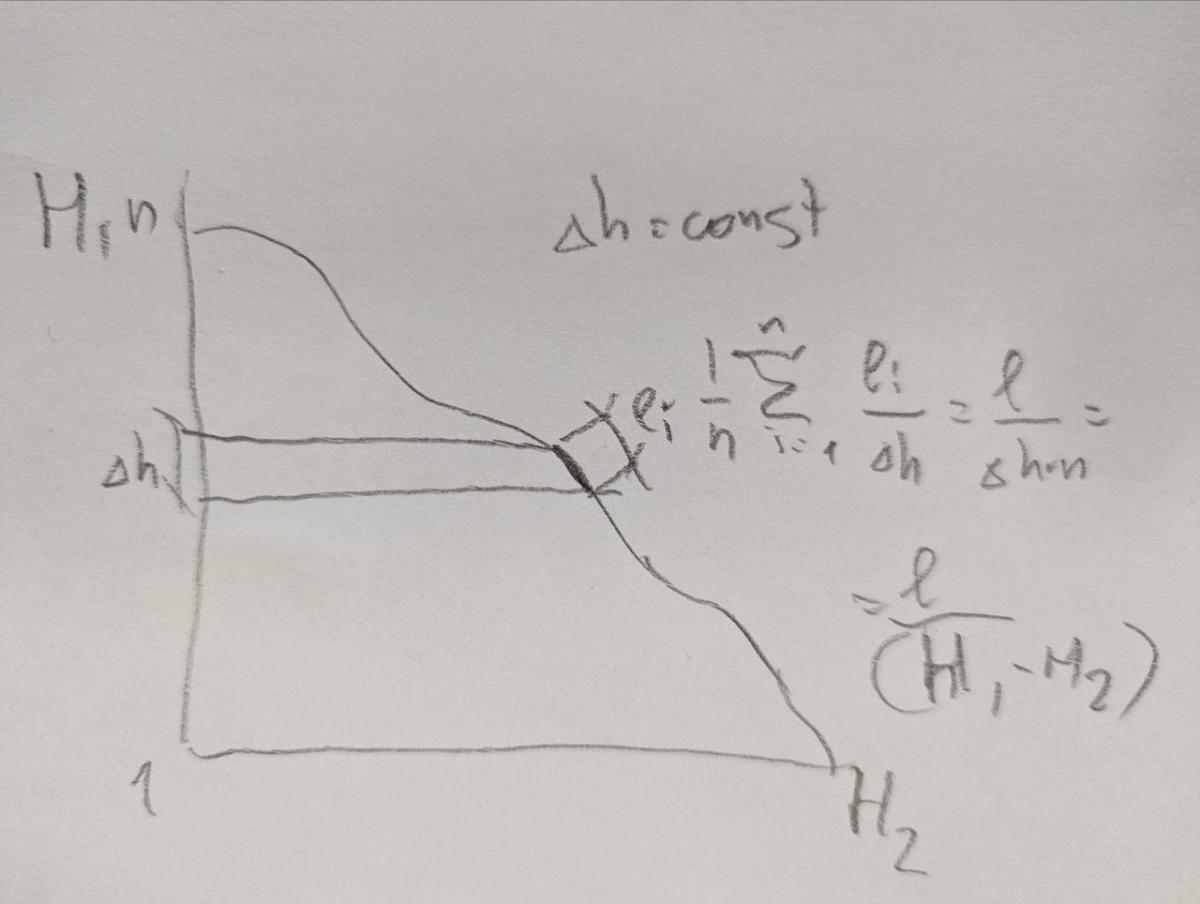 H₁, n
Δh = const
Δh
ℓᵢ
1/n ∑ⁿᵢ₌₁ ℓᵢ/Δh = ℓ/Δh·n =
= ℓ/(H₁ - H₂)
1
H₂